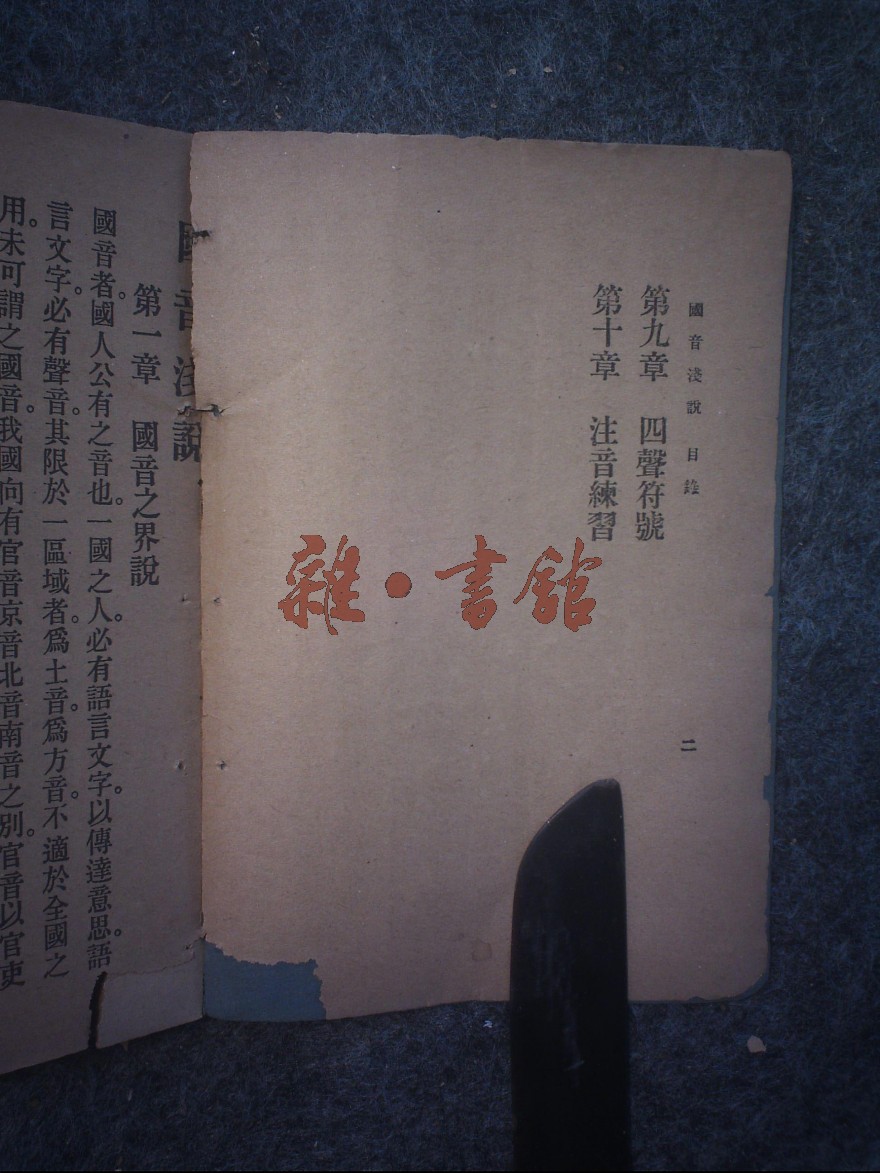 國音淺說 目錄
第九章 四聲符號
第十章 注音練習
二
雜·書館
國音淺說
第一章 國音之界說
國音者。國人公有之音也。一國之人。必有語言文字。以傳達意思。語
言文字。必有聲音。其限於一區域者。爲土音。爲方音。不適於全國之
用。未可謂之國音。我國向有官音京音北音南音之別。官音以官吏